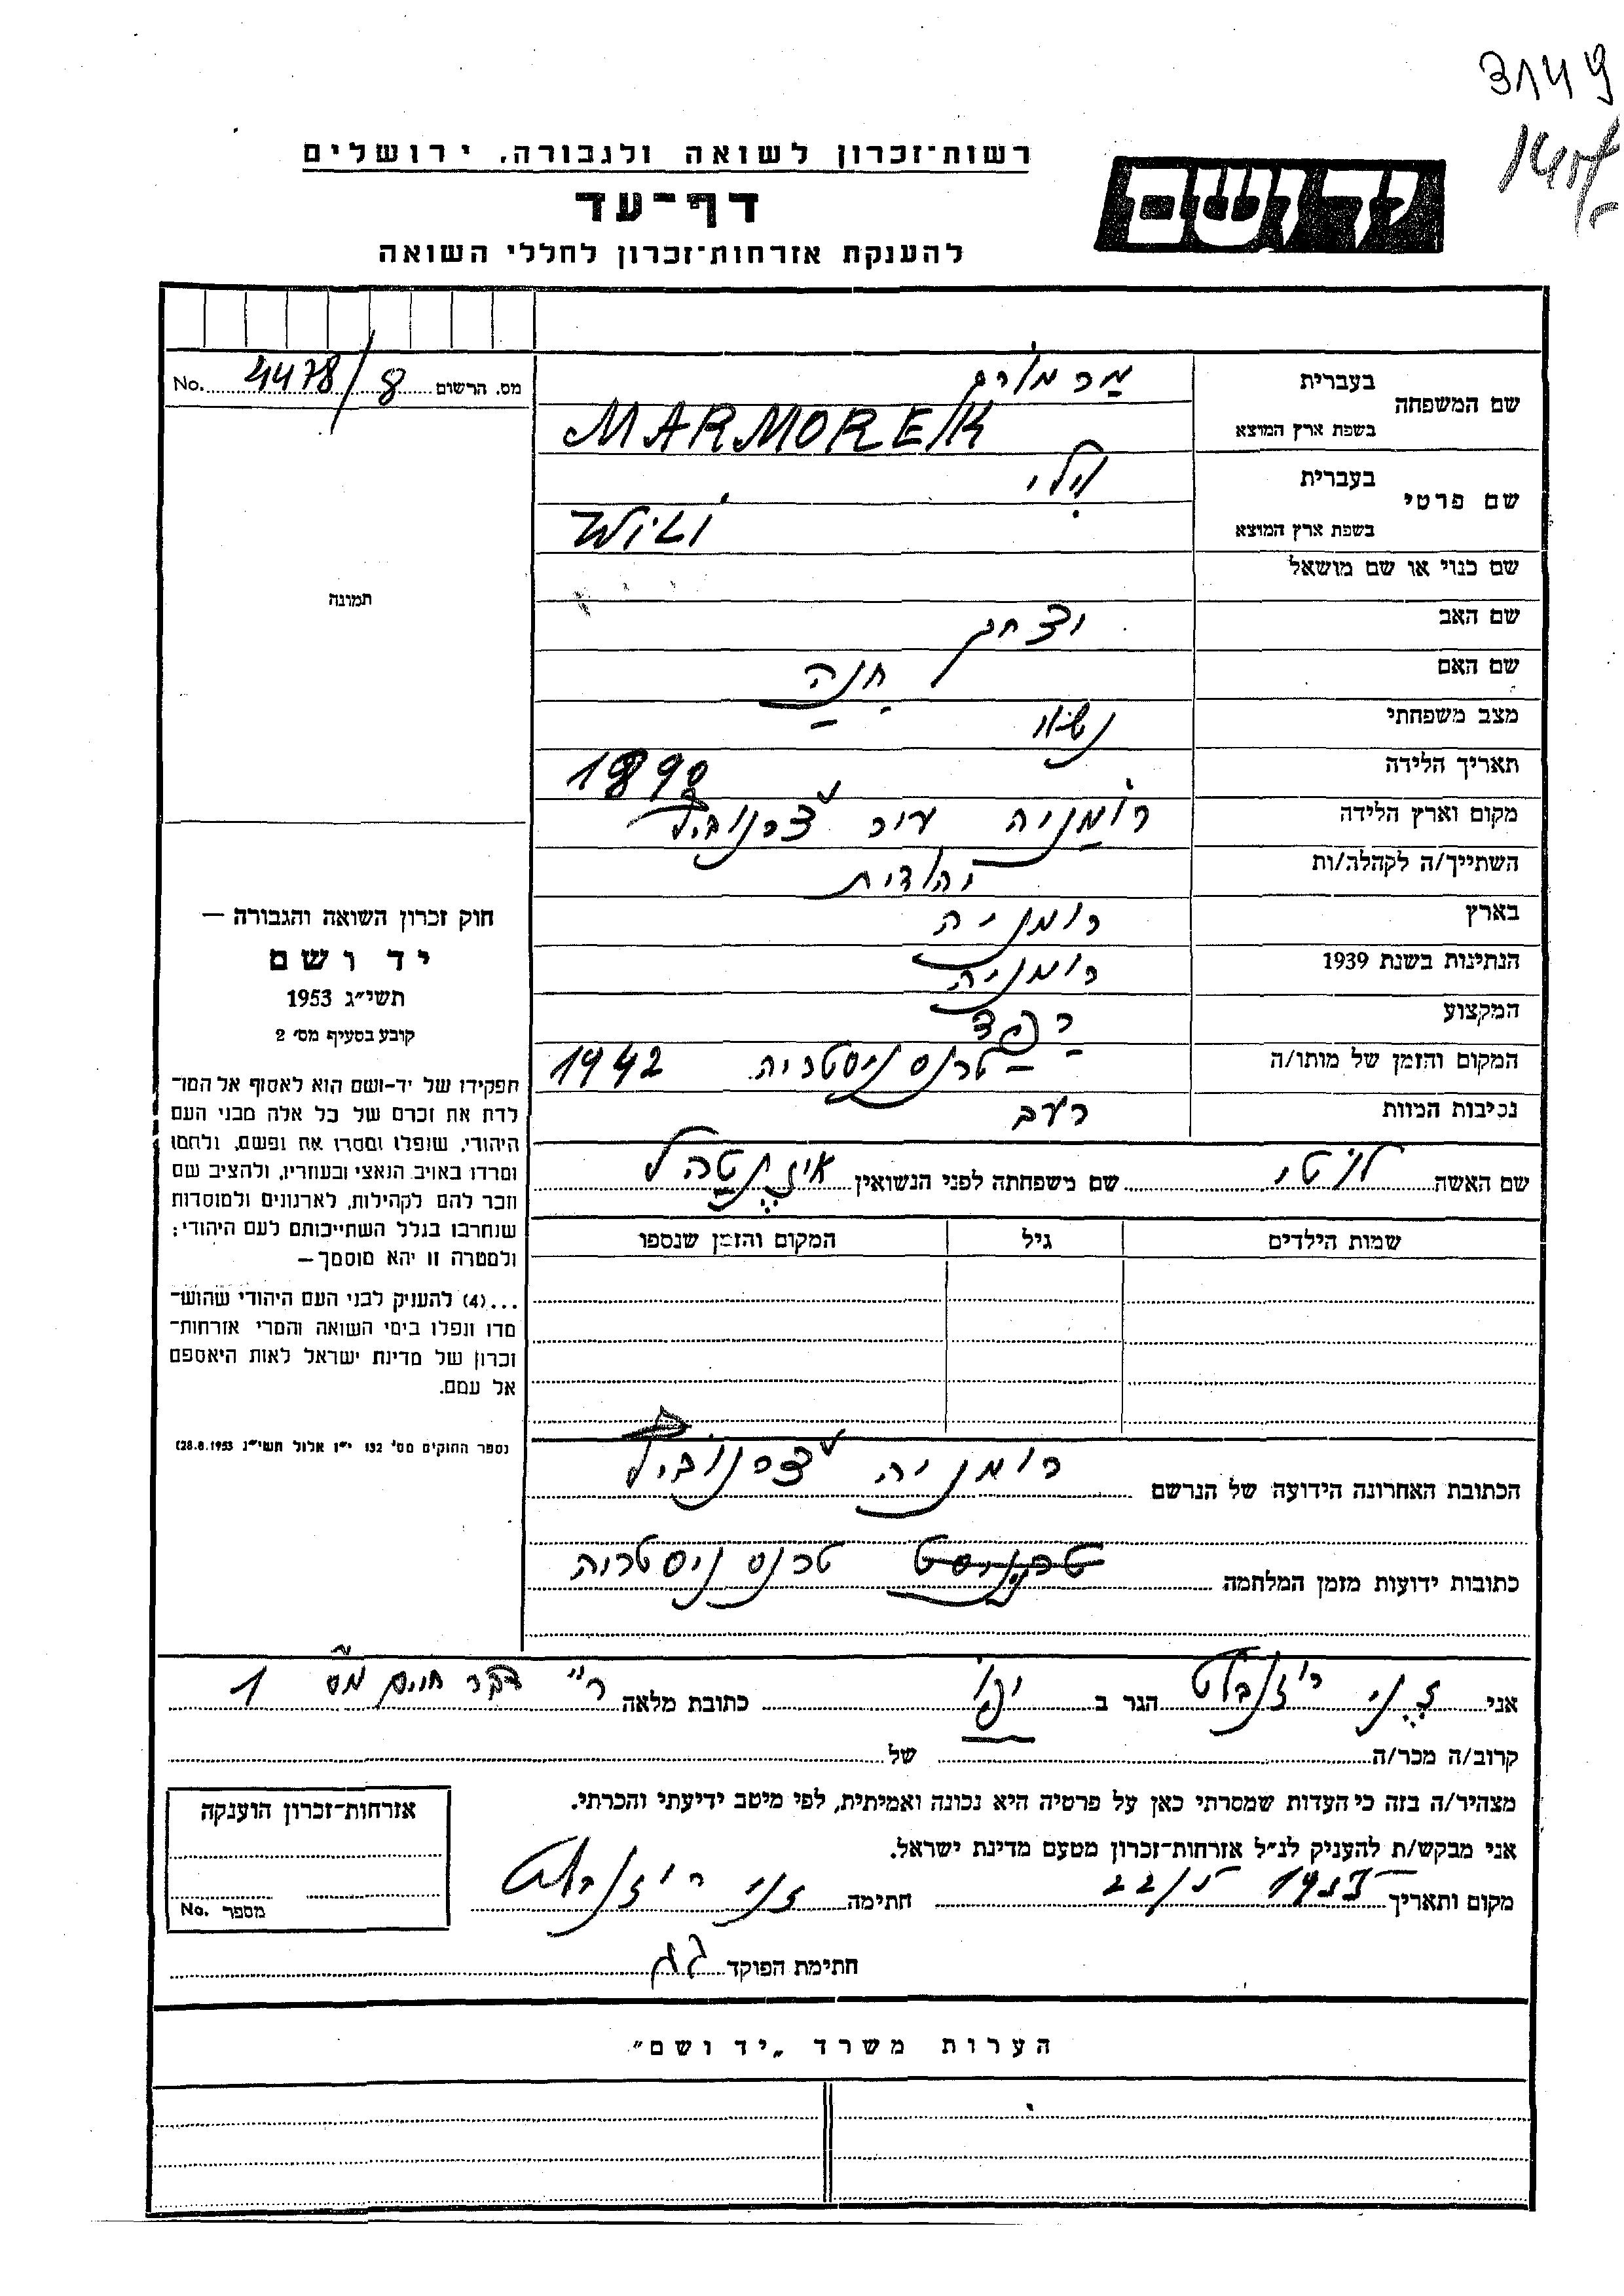 3149
רשות־זכרון לשואה ולגבורה, ירושלים
יד ושם
דף־עד
להענקת אזרחות־זכרון לחללי השואה
מס. הרשום 8 / 4478 No.
שם המשפחה
בעברית מרמורק
בשפת ארץ המוצא MARMOREK
שם פרטי
בעברית וילי
בשפת ארץ המוצא Wili
שם כנוי או שם מושאל
תמונה
שם האב יצחק
שם האם חנה
מצב משפחתי נשוי
תאריך הלידה 1898
מקום וארץ הלידה רומניה עיר צרנוביץ
השתייך/ה לקהלה/ות יהודית
בארץ רומניה
הנתינות בשנת 1939 רומניה
המקצוע
המקום והזמן של מותו/ה טרנסניסטריה 1942
נסיבות המוות רעב
שם האשה לוטי שם משפחתה לפני הנשואין
שמות הילדים גיל המקום והזמן שנספו
חוק זכרון השואה והגבורה —
יד ושם
תשי״ג 1953
קובע בסעיף מס׳ 2
תפקידו של יד־ושם הוא לאסוף אל המו־
לדת את זכרם של כל אלה מבני העם
היהודי, שנפלו ומסרו את נפשם, נלחמו
ומרדו באויב הנאצי ובעוזריו, ולהציב שם
וזכר להם לקהילות, לארגונים ולמוסדות
שנחרבו בגלל השתייכותם לעם היהודי;
ולמטרה זו יהא מוסמך —
...(4) להעניק לבני העם היהודי שהוש־
מדו ונפלו בימי השואה והמרי אזרחות־
זכרון של מדינת ישראל לאות היאספם
אל עמם.
(ספר החוקים מס׳ 132 י״ז אלול תשי״ג 28.8.1953)
הכתובת האחרונה הידועה של הנרשם רומניה צרנוביץ
כתובות ידועות מזמן המלחמה טרנסניסטריה
אני ז׳ני רוזנבלט הגר ב יפו כתובת מלאה מס 1
קרוב/ה מכר/ה של
מצהיר/ה בזה כי העדות שמסרתי כאן על פרטיה היא נכונה ואמיתית, לפי מיטב ידיעתי והכרתי.
אני מבקש/ת להעניק לנ״ל אזרחות־זכרון מטעם מדינת ישראל.
מקום ותאריך חתימה ז׳ני רוזנבלט
חתימת הפוקד
אזרחות־זכרון הוענקה
מספר No.
הערות משרד „יד ושם״